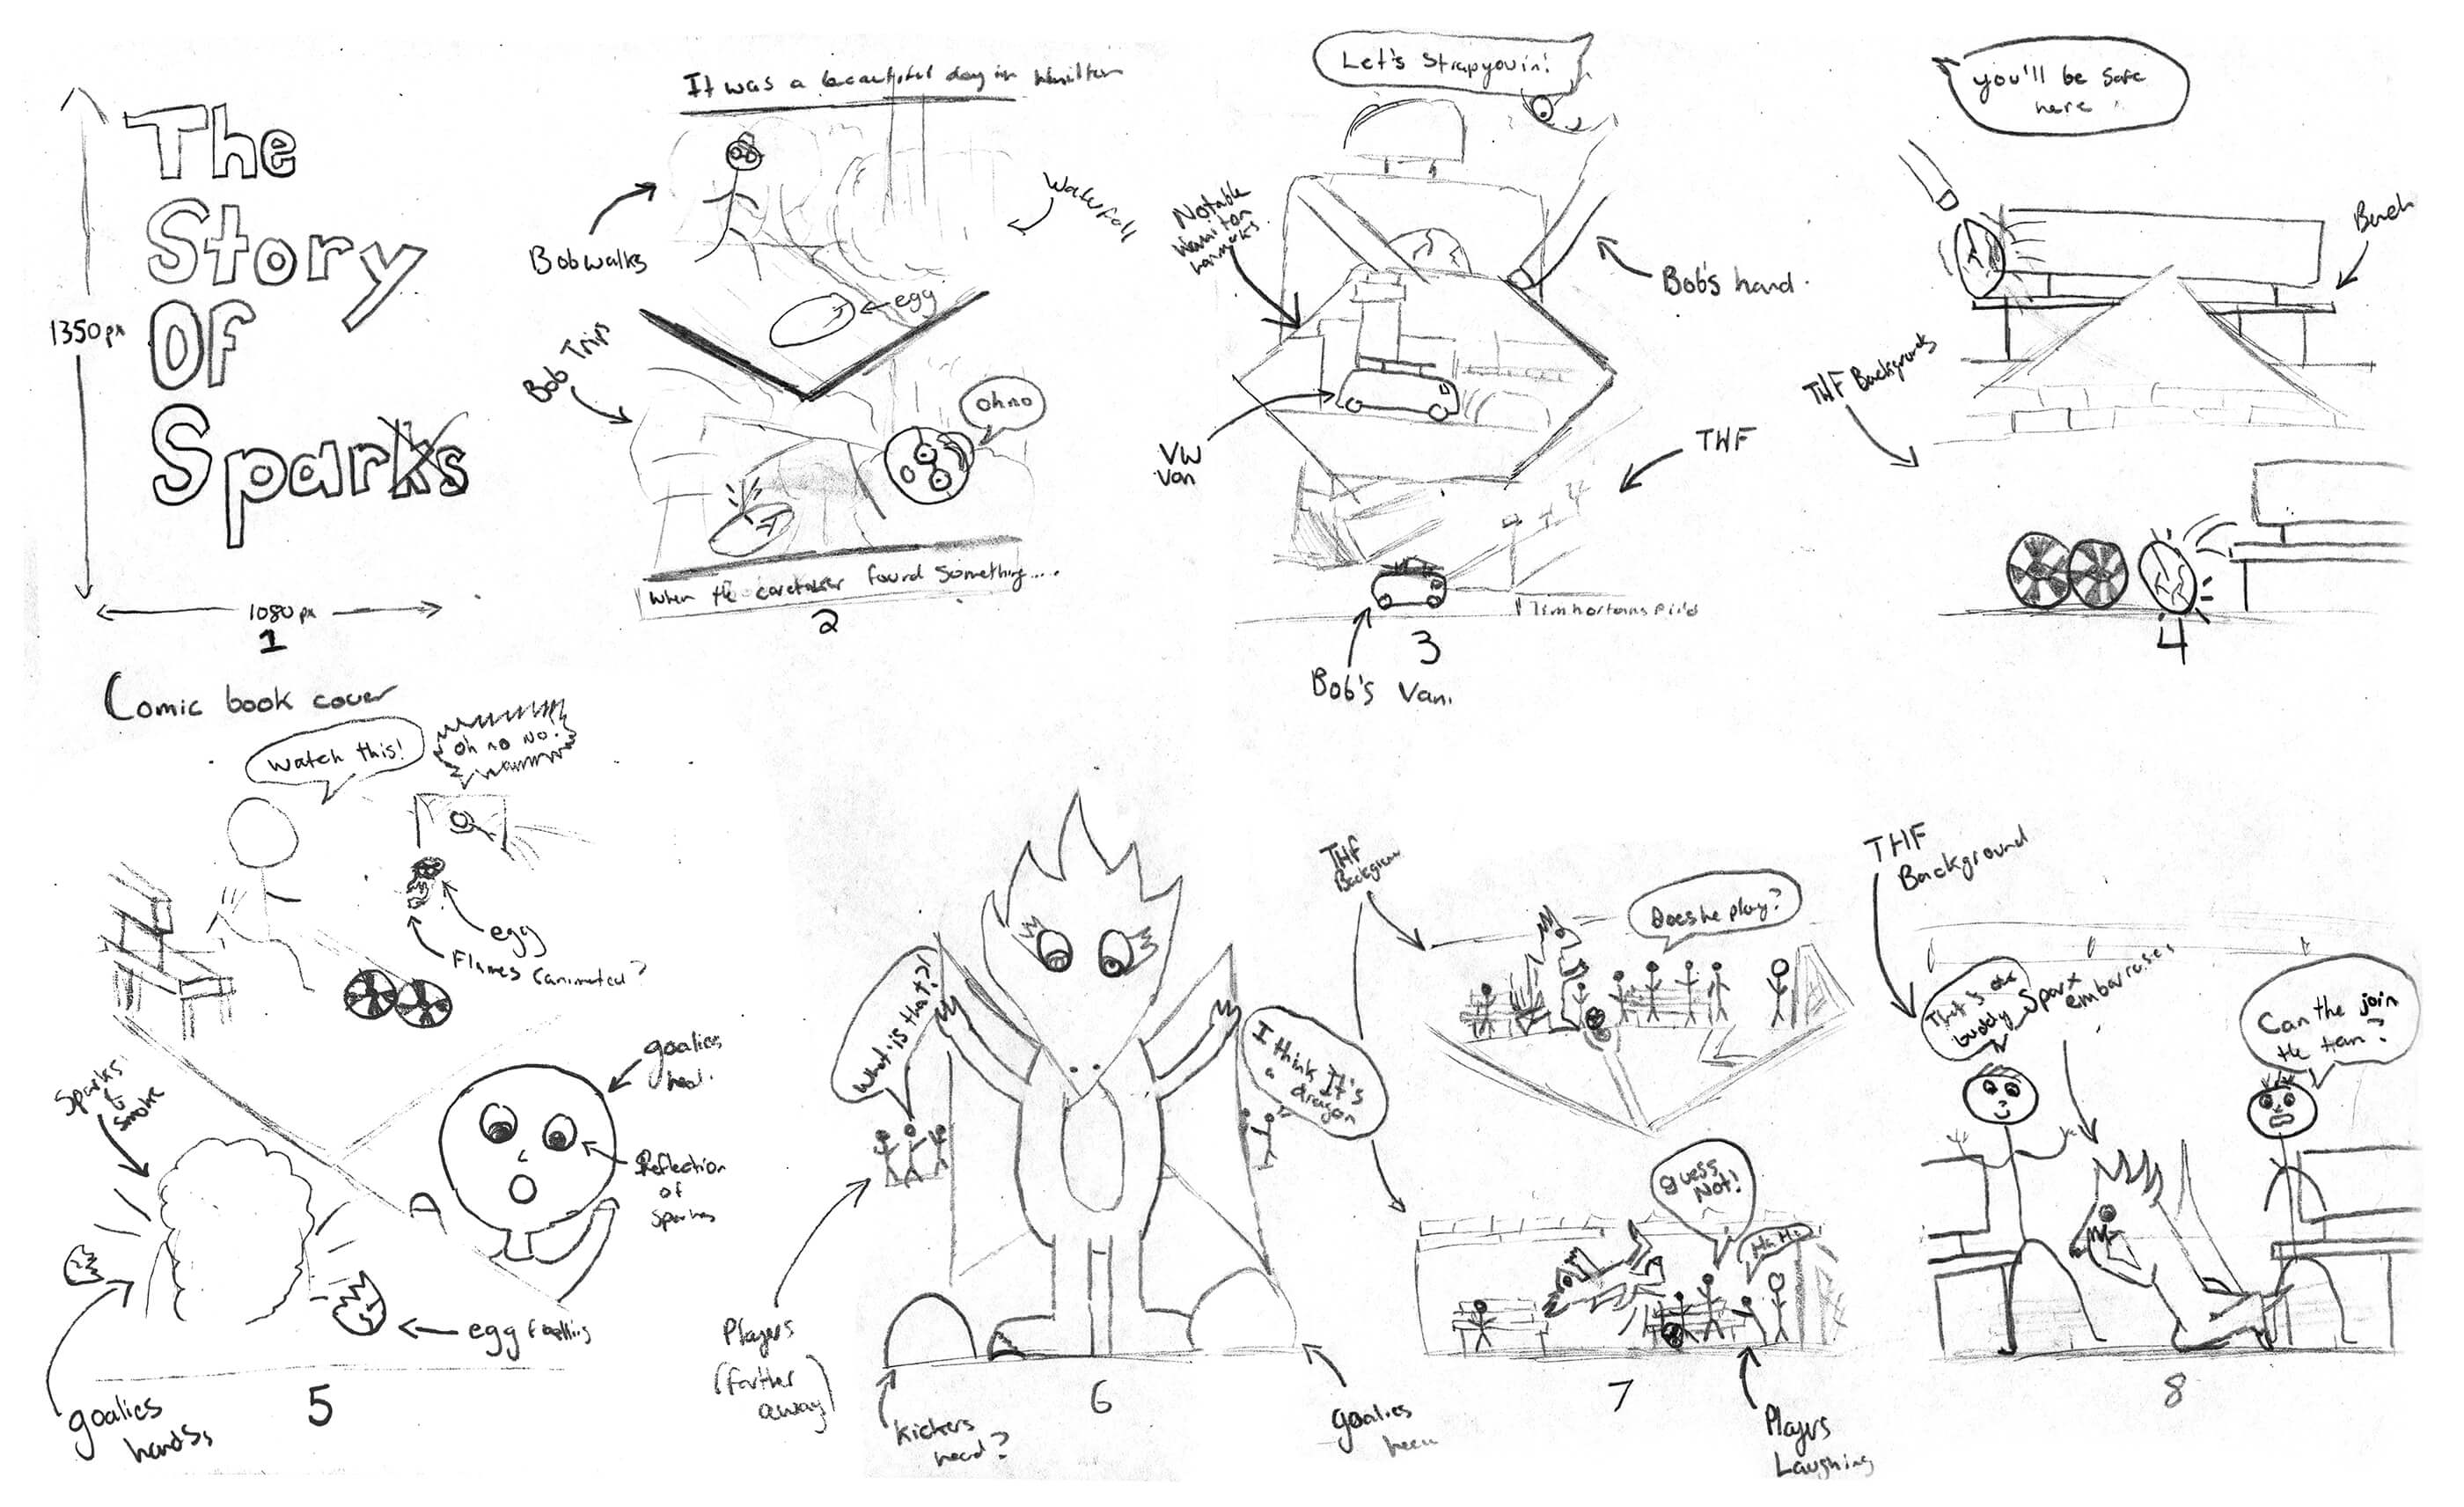 The
Story
Of
Sparks
1350px
1080px
1
Comic book cover
It was a beautiful day in Hamilton
Bob walks
Waterfall
egg
Bob Trips
oh no
When the caretaker found something....
2
Let's Strap you in!
Notable
Bob's hand.
VW
Van
THF
Tim hortons Field
3
Bob's Van.
you'll be safe
here!
Bench
THF Backgrounds
4
Watch this!
Oh no no!
egg
Flames (animated?
Sparks
&
smoke
goalies
head.
Reflection
of
Sparks
egg falling
goalies
hands
5
What is that?!
I think It's
a dragon
Players
(farther
away)
kickers
head?
6
goalies
THF
Background
Does he play?
guess
Not!
Ha Ha
7
Players
Laughing
THF
Background
That's ok
buddy
Sparx
embarrases
Can the join
the team?
8